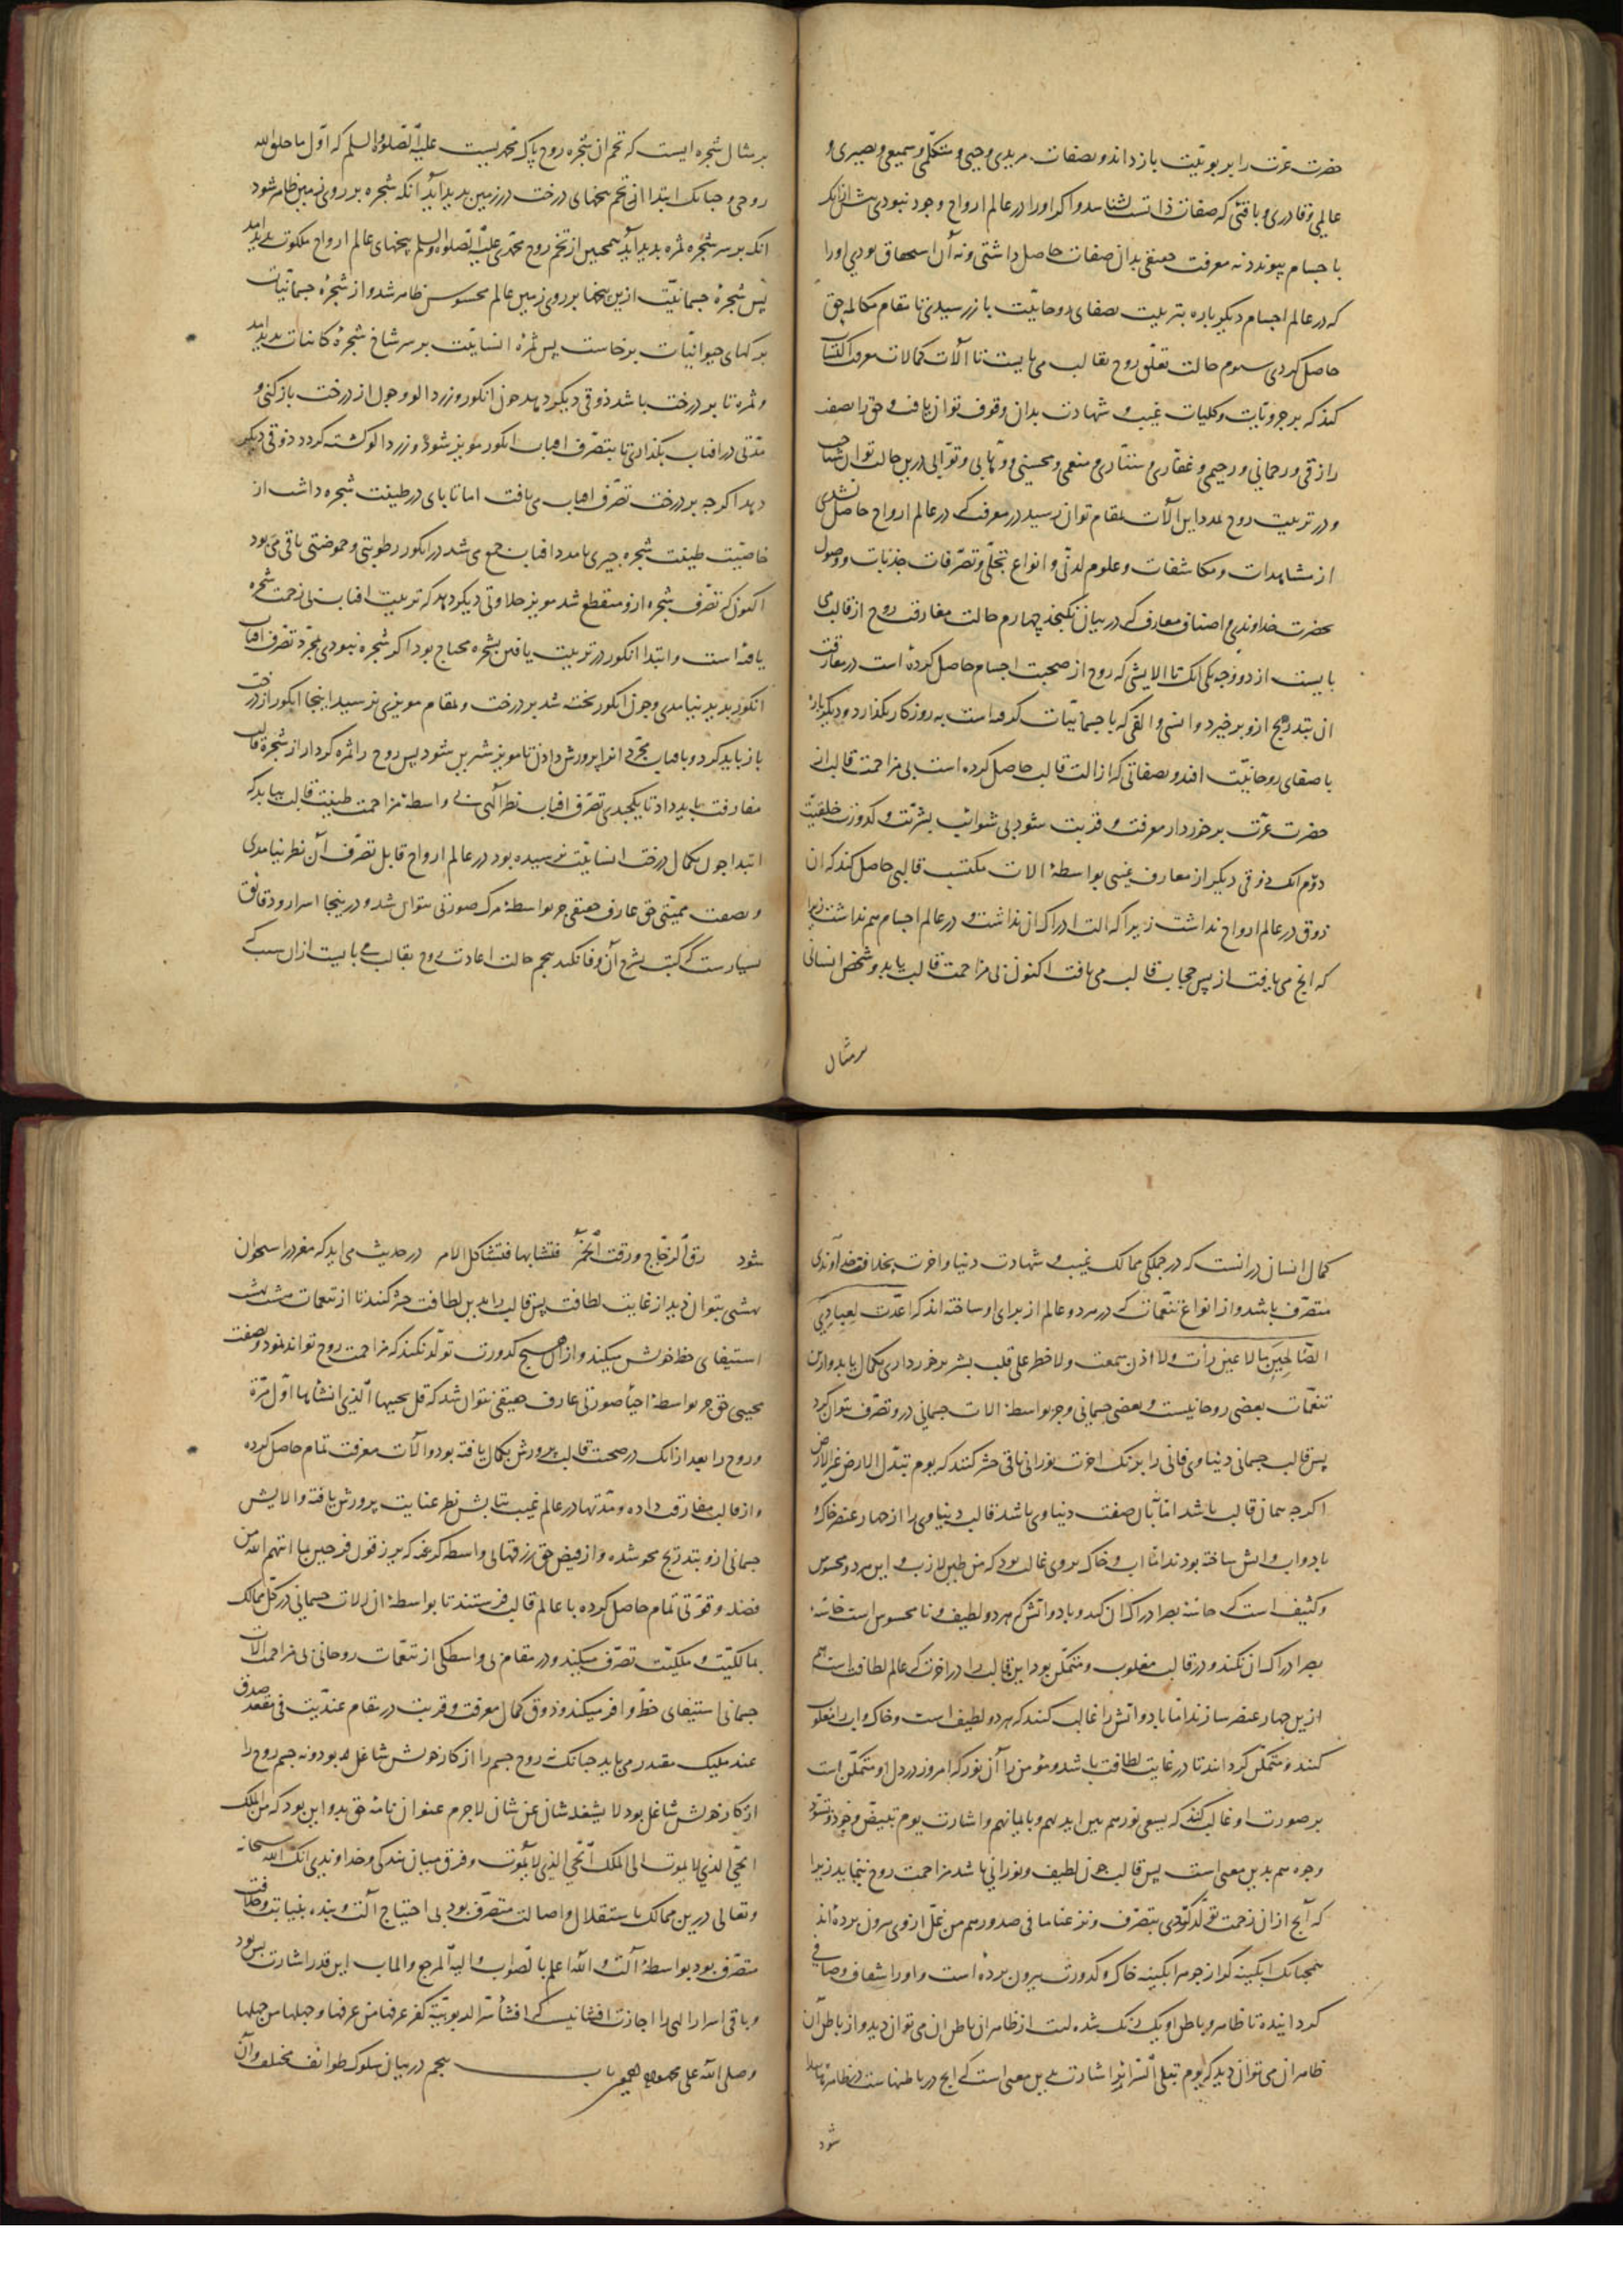 حضرت عزت را بربوبیت باز داند و بصفات مریدی و حیی و متکلمی و سمیعی و بصیری و
عالمی و قادری و باقئی که صفات ذاتست بشناسد و اکر او را در عالم ارواح وجود نبودی پیش از انک
باجسام پیوندد نه معرفت حقیقی بدان صفات حاصل داشتی و نه آن استحقاق بودی او را
که در عالم اجسام دیکرباره بتربیت بصفای روحانیت باز رسیدی تا مقام مکالمه حق
حاصل کردی سوم حالت تعلق روح بقالب می بایست تا آلات کمالات معرفت اکتساب
کند که بر جزویات و کلیات غیب و شهادت بدان وقوف توان یافت و حق را بصفت
رازقی و رحمانی و رحیمی و غفاری و ستاری و منعمی و محسنی و وهابی و توابی درین حالت توان شناخت
و در تربیت روح بمدد این آلات بمقام توان رسید در معرفت که در عالم ارواح حاصل نشدی
از مشاهدات و مکاشفات و علوم لدنی و انواع تجلی و تصرفات جذبات و وصول
بحضرت خداوندی و اصناف معارف که در بیان نکنجد چهارم حالت مفارقت روح از قالب می
بایست از دو وجه یکی انک تا الایشی که روح از صحبت اجسام حاصل کرده است در مفارقت
ان بتدریج ازو برخیزد و انسی و الفی که با جسمانیات کرفته است به روزکار بکذارد و دیکر باره
با صفای روحانیت افتد و بصفاتی که از الت قالب حاصل کرده است بی مزاحمت قالب از
حضرت عزت برخوردار معرفت و قربت شود بی شوائب بشریت و کدورت خلقیت
دوم انک ذوقی دیکر از معارف غیبی بواسطهٔ الات مکتسب قالبی حاصل کند که ان
ذوق در عالم ارواح نداشت زیرا که الت ادراک ان نداشت و در عالم اجسام هم نداشت زیرا
که انج می یافت از پس حجاب قالب می یافت اکنون بی مزاحمت قالب یابد و شخص انسانی
بر مثال
بر مثال شجره ایست که تخم ان شجره روح پاک محمدیست علیه الصلوة والسلم که اول ما خلق الله
روحی و چنانک ابتدا از تخم بیخهای درخت در زمین پدید آید آنکه شجره بر روی زمین ظاهر شود
انکه بر سر شجره ثمره پدید آید همچنین از تخم روح محمدی علیه الصلوة والسلم بیخهای عالم ارواح ملکوت پدید امد
پس شجرهٔ جسمانیت ازین بیخها بر روی زمین عالم محسوس ظاهر شد و از شجرهٔ جسمانیات
برکهای حیوانیات برخاست پس ثمرهٔ انسانیت بر سر شاخ شجرهٔ کائنات پدید امد
و ثمره تا بر درخت باشد ذوقی دیکر دهد چون انکور و زردالو و چون از درخت باز کنی و
مدتی در افتاب بکذاری تا بتصرف افتاب انکور مویز شود و زردالو کشته کردد ذوقی دیکر
دهد اکرچه بر درخت تصرف افتاب می یافت اما تا پای در طینت شجره داشت از
خاصیت طینت شجره چیزی با مدد افتاب جمع می شد در انکور رطوبتی و حموضتی باقی می بود
اکنون که تصرف شجره ازو منقطع شد مویز حلاوتی دیکر دهد که تربیت افتاب بی زحمت شجره
یافته است و ابتدا انکور در تربیت یافتن بشجره محتاج بود اکر شجره نبودی بمجرد تصرف افتاب
انکور پدید نیامدی و چون انکور پخته شد بر درخت و بمقام مویزی نرسید اینجا انکور از درخت
باز باید کرد و بافتاب مجرد انرا پرورش دادن تا مویز شیرین شود پس روح را ثمره کردار از شجره قالب
مفارقت باید داد تا یکچندی تصرف افتاب نظر الهی بی واسطهٔ مزاحمت طینت قالب بیابد که
ابتدا چون بکمال درخت انسانیت نرسیده بود در عالم ارواح قابل تصرف آن نظر نیامدی
و بصفت ممیتی حق عارف حقیقی جز بواسطهٔ مرک صورتی نتوان شد و درینجا اسرار و دقائق
بسیارست که کتب بشرح آن وفا نکند پنجم حالت اعادت روح بقالب می بایست از ان سبب که
کمال انسان در انست که در جملکی ممالک غیب و شهادت دنیا و اخرت بخلافت خداوندی
متصرف باشد و از انواع تنعمات که در هر دو عالم از برای او ساخته اند که اعدت لعبادی
الصالحین ما لا عین رأت و لا اذن سمعت و لا خطر علی قلب بشر برخورداری بکمال یابد و ازین
تنعمات بعضی روحانیست و بعضی جسمانی و جز بواسطهٔ الات جسمانی در و تصرف نتوان کرد
پس قالب جسمانی دنیاوی فانی را برنک اخرت نورانی باقی حشر کنند که یوم تبدل الارض غیر الارض
اکرچه همان قالب باشد اما نه بان صفت دنیاوی باشد قالب دنیاوی را از چهار عنصر خاک و
باد و اب و اتش ساخته بودند اما اب و خاک بروی غالب بود که من طین لازب و این هر دو محسوس
و کثیف است که حاسهٔ بصر ادراک ان کند و باد و اتش که هر دو لطیف و نا محسوس است حاسهٔ
بصر ادراک ان نکند و در قالب مغلوب و متمکن بود این قالب را در اخرت که عالم لطافت است هم
ازین چهار عنصر سازند اما باد و اتش را غالب کنند که هر دو لطیف است و خاک و اب را مغلوب
کنند و متمکن کردانند تا در غایت لطافت باشد و مؤمن را آن نور که امروز در دل او متمکن است
بر صورت او غالب کنند که یسعی نورهم بین ایدیهم و بایمانهم و اشارت یوم تبیض وجوه و تسود
وجوه هم بدین معنی است پس قالب چون لطیف و نورانی باشد مزاحمت روح ننماید زیرا
که آنج از ان زحمت تولد کردی بتصرف و نزعنا ما فی صدورهم من غل ازوی بیرون برده اند
همچنانک ابکینه کر از جوهر ابکینه خاک و کدورت بیرون برده است و او را شفاف و صافی
کردانیده تا ظاهر و باطن او یک رنک شده است از ظاهر ان باطن ان می توان دید و از باطن آن
ظاهر ان می توان دید که یوم تبلی السرائر اشارت بدین معنی است که انج در باطنهاست در ظاهرها پیدا
شود
شود رق الزجاج و رقت الخمر فتشابها فتشاکل الامر در حدیث می اید که مغز در استخوان
بهشتی بتوان دید از غایت لطافت پس قالب را بدین لطافت حشر کنند تا از تنعمات هشت بهشت
استیفای حظ خویش میکند و از ان هیچ کدورت تولد نکند که مزاحمت روح تواند نمود و بصفت
محیی حق جز بواسطهٔ احیأ صورتی عارف حقیقی نتوان شد که قل یحییها الذی انشأها اول مرة
و روح را بعد از انک در صحبت قالب پرورش بکمال یافته بود و آلات معرفت تمام حاصل کرده
و از قالب مفارقت داده و مدتها در عالم غیب بتابش نظر عنایت پرورش یافته و الایش
جسمانی ازو بتدریج محو شده و از فیض حق رزقها بی واسطه کرفته که یرزقون فرحین بما اتیهم الله من
فضله و قوتی تمام حاصل کرده با عالم قالب فرستند تا بواسطهٔ ان الات جسمانی در کل ممالک
بمالکیت و ملکیت تصرف میکند و در مقام بی واسطکی از تنعمات روحانی بی مزاحمت الات
جسمانی استیفای حظ وافر میکند و ذوق کمال معرفت و قربت در مقام عندیت فی مقعد صدق
عند ملیک مقتدر می یابد چنانک نه روح جسم را از کار خویش شاغل بود و نه جسم روح را
از کار خویش شاغل بود لا یشغله شان عن شان لاجرم عنوان نامهٔ حق بدو این بود که من الملک
الحی الذی لا یموت الی الملک الحی الذی لا یموت و فرق میان بندکی و خداوندی انک الله سبحانه
و تعالی درین ممالک باستقلال و اصالت متصرف بود بی احتیاج آلت و بنده بنیابت و خلافت
متصرف بود بواسطهٔ آلت و الله اعلم بالصواب و الیه المرجع و الماب این قدر اشارت بس بود
و باقی اسرار الهی را اجازت افشا نیست که افشأ سر الربوبیة کفر عرفها من عرفها و جهلها من جهلها
و صلی الله علی محمد و اله اجمعین باب پنجم در بیان سلوک طوائف مختلف و آن